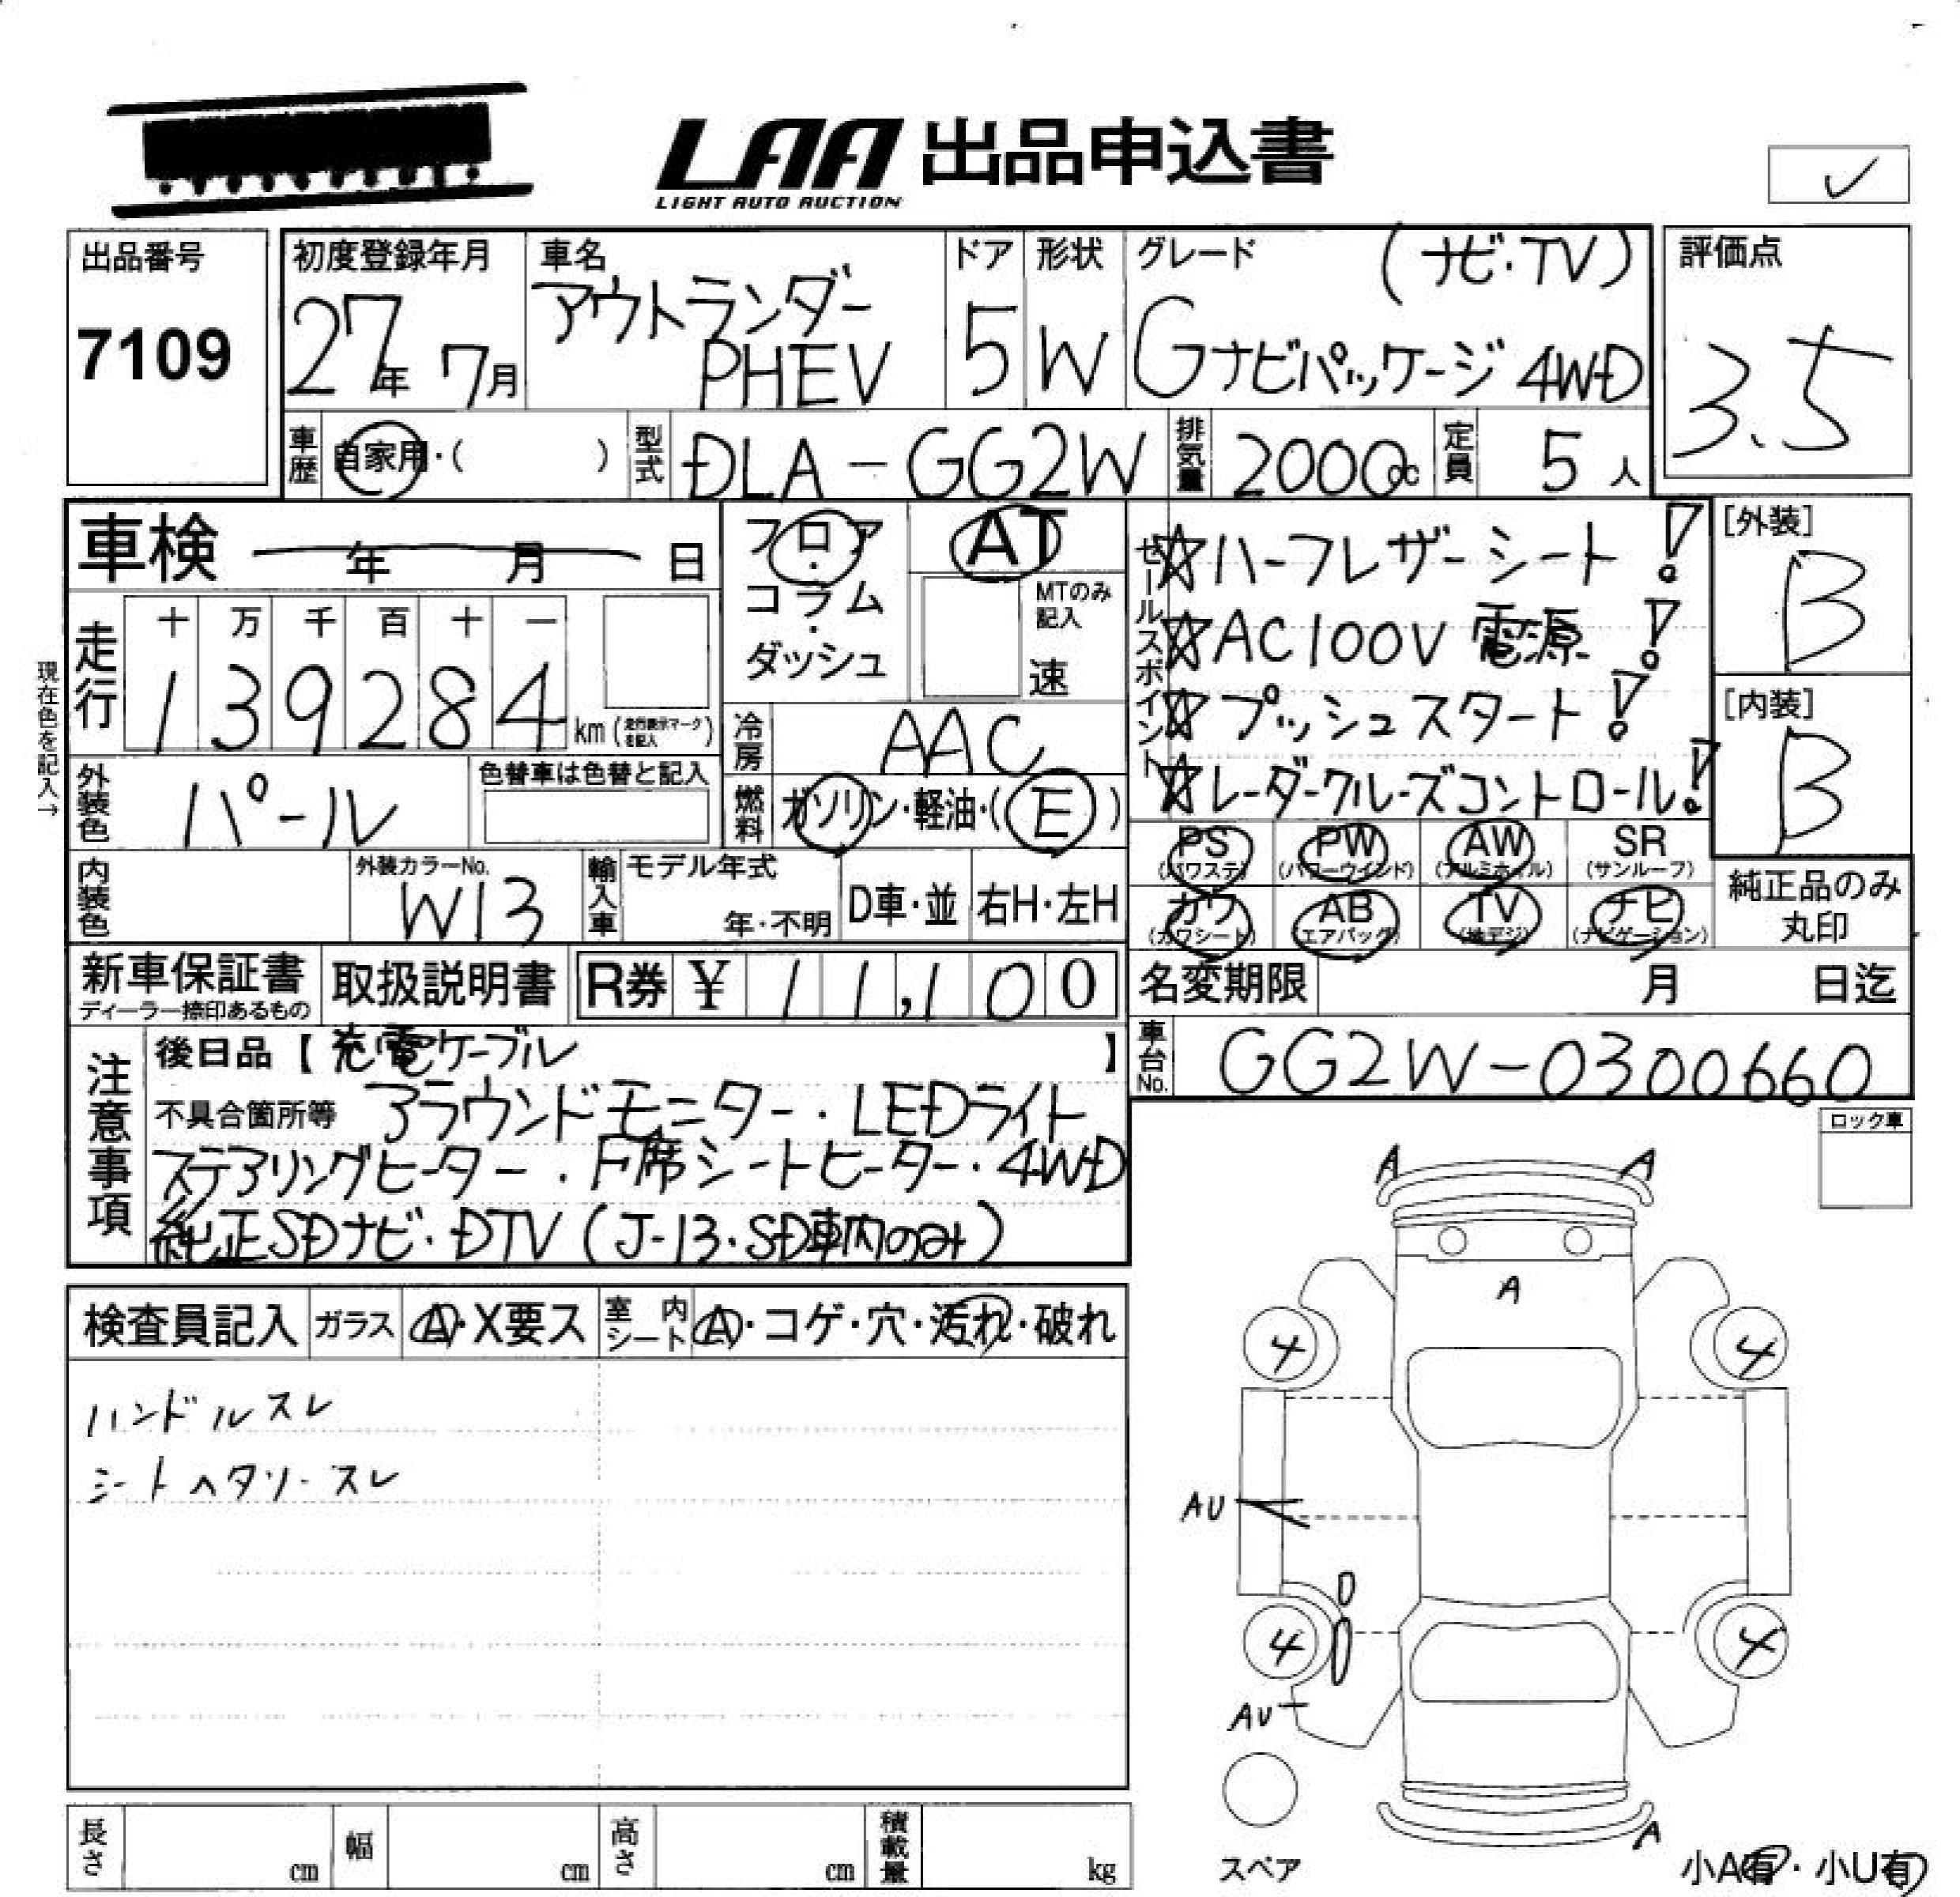 LAA 出品申込書
LIGHT AUTO AUCTION
✓
出品番号
7109
初度登録年月
27年 7月
車名
アウトランダー
PHEV
ドア
5
形状
W
グレード (ナビ・TV)
Gナビパッケージ 4WD
評価点
3.5
車歴 自家用・( )
型式 DLA-GG2W
排気量 2000cc
定員 5人
車検 年 月 日
フロア・コラム・ダッシュ
AT
MTのみ記入
速
セールスポイント
☆ハーフレザーシート!
☆AC100V 電源!
☆プッシュスタート!
☆レーダークルーズコントロール!
[外装]
B
[内装]
B
現在色を記入→
走行
十 万 千 百 十 一
1 3 9 2 8 4 km (走行表示マークを記入)
冷房 AAC
燃料 ガソリン・軽油・(E)
外装色 パール
色替車は色替と記入
内装色
外装カラーNo.
W13
輸入車
モデル年式
年・不明
D車・並
右H・左H
PS (パワステ)
PW (パワーウインド)
AW (アルミホイル)
SR (サンルーフ)
カワ (カワシート)
AB (エアバッグ)
TV (地デジ)
ナビ (ナビゲーション)
純正品のみ
丸印
新車保証書
ディーラー捺印あるもの
取扱説明書
R券 ¥ 11,100
名変期限 月 日迄
車台No. GG2W-0300660
注意事項
後日品【充電ケーブル】
不具合箇所等 アラウンドモニター・LEDライト
ステアリングヒーター・F席シートヒーター・4WD
純正SDナビ・DTV (J-13・SD車内のみ)
ロック車
検査員記入
ガラス A・X要ス
室内シート A・コゲ・穴・汚れ・破れ
ハンドルスレ
シートヘタリ・スレ
A A
A
4 4
AU
4 4
AU
A
スペア
小A有・小U有
長さ cm
幅 cm
高さ cm
積載量 kg